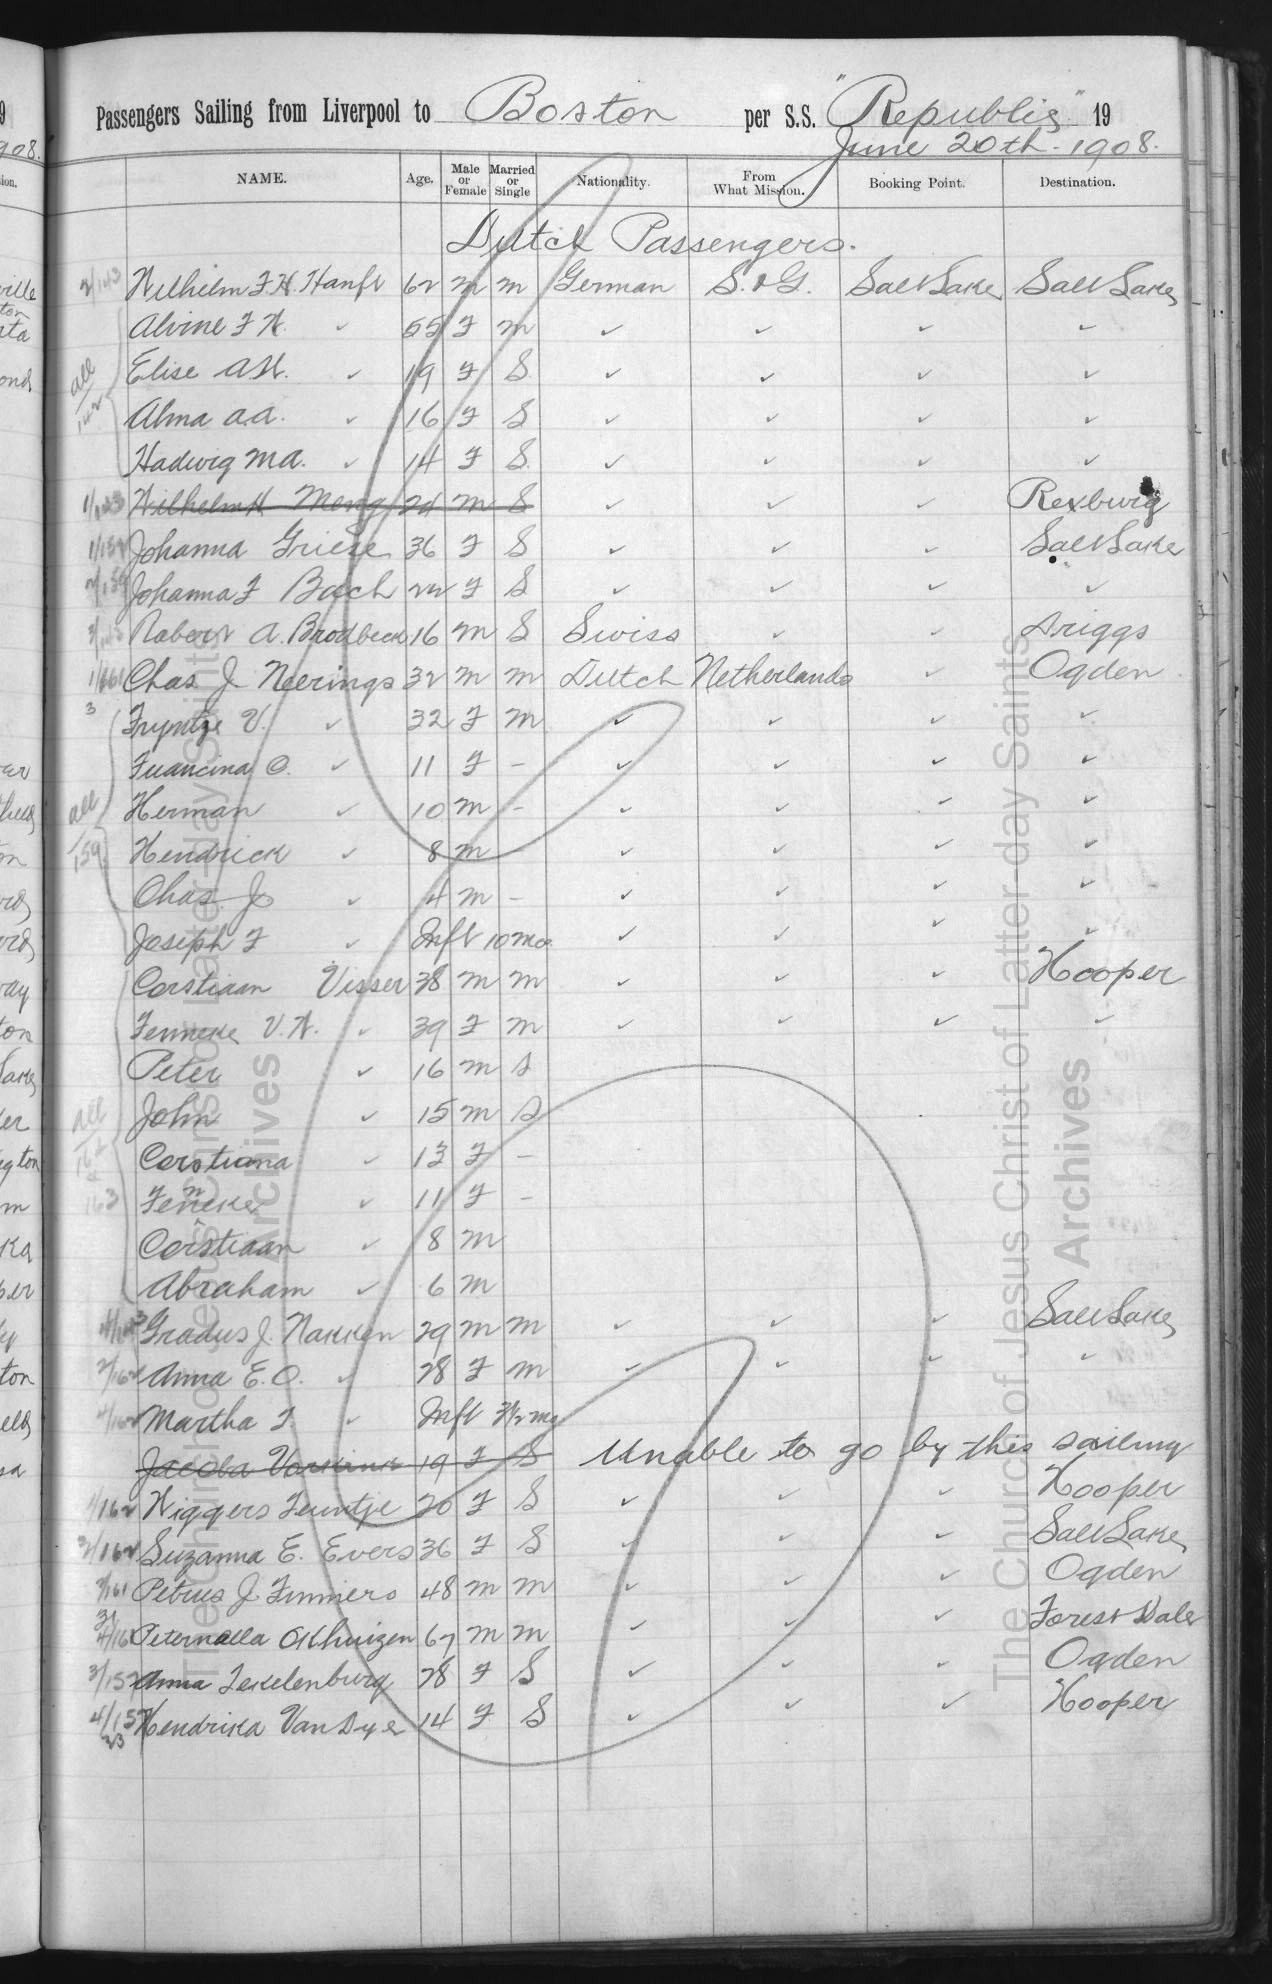 Passengers Sailing from Liverpool to Boston per S.S. "Republic" 19
June 20th - 1908.
NAME. Age. Male or Female Married or Single Nationality. From What Mission. Booking Point. Destination.
Dutch Passengers.
2/143 Wilhelm F. H. Hanft 62 m m German S. & G. Salt Lake Salt Lake
Alvine F W. ✓ 55 F m ✓ ✓ ✓ ✓
all 142 Elise A H. ✓ 19 F S ✓ ✓ ✓ ✓
Alma A.A. ✓ 16 F S ✓ ✓ ✓ ✓
Hadwig M A. ✓ 14 F S ✓ ✓ ✓ ✓
1/143 Wilhelm H Meng 24 m S ✓ ✓ ✓ Rexburg
Johanna Griese 36 F S ✓ ✓ ✓ Salt Lake
Johanna F Bach 22 F S ✓ ✓ ✓ ✓
Robert A. Brodbeck 16 m S Swiss ✓ ✓ Driggs
1/161 Chas J Neerings 32 m m Dutch Netherlands ✓ Ogden
3 Tryntze V. ✓ 32 F m ✓ ✓ ✓ ✓
Francina C. ✓ 11 F - ✓ ✓ ✓ ✓
all 159 Herman ✓ 10 m - ✓ ✓ ✓ ✓
Hendrick ✓ 8 m ✓ ✓ ✓ ✓
Chas. J. ✓ 4 m - ✓ ✓ ✓ ✓
Joseph F ✓ Inft 10 mo ✓ ✓ ✓ ✓
Corstiaan Visser 38 m m ✓ ✓ ✓ Hooper
Tenneke V. W. ✓ 39 F m ✓ ✓ ✓ ✓
Peter ✓ 16 m S
all 162 John ✓ 15 m S
& Corstiana ✓ 13 F -
163 Tenneke ✓ 11 F -
Corstiaan ✓ 8 m
Abraham ✓ 6 m
Gradus J. Nakken 29 m m ✓ ✓ ✓ Salt Lake
2/162 Anna E. O. ✓ 28 F m ✓ ✓ ✓ ✓
4/162 Martha J. ✓ Inft 3½ mo
Jacoba Vorkink 19 F S Unable to go by this sailing
1/162 Wiggers Teuntje 20 F S ✓ ✓ ✓ Hooper
2/162 Suzanna E. Evers 36 F S ✓ ✓ ✓ Salt Lake
2/161 Petrus J. Timmers 48 m m ✓ ✓ ✓ Ogden
Peternella Okhuizen 67 m m ✓ ✓ ✓ Forest Dale
3/157 Anna Tekelenburg 28 F S ✓ ✓ ✓ Ogden
4/157 Hendrika Van Dyke 14 F S ✓ ✓ ✓ Hooper
23
The Church of Jesus Christ of Latter-day Saints
Archives
The Church of Jesus Christ of Latter-day Saints
Archives